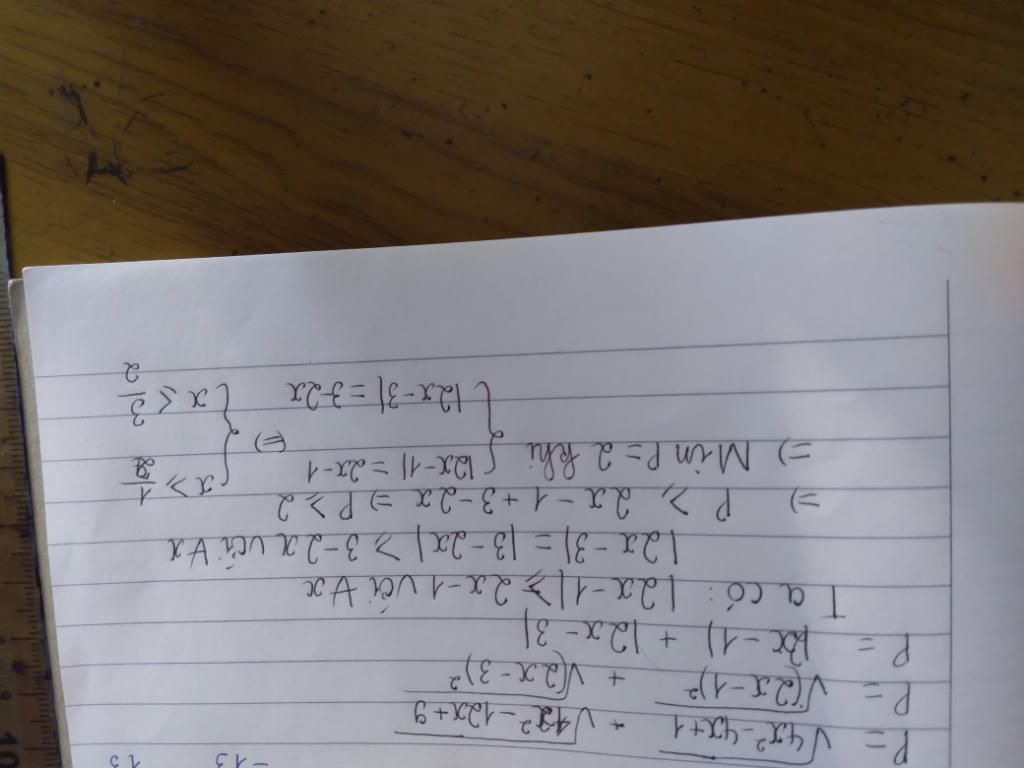 -13 15
P = √4x²-4x+1 + √4x²-12x+9
P = √(2x-1)² + √(2x-3)²
P = |2x-1| + |2x-3|
Ta có: |2x-1| ≥ 2x-1 với ∀x
|2x-3| = |3-2x| ≥ 3-2x với ∀x
=> P ≥ 2x-1+3-2x => P ≥ 2
=> Min P=2 khi { |2x-1| = 2x-1 <=> { x ≥ 1/2
|2x-3| = 3-2x x ≤ 3/2
10